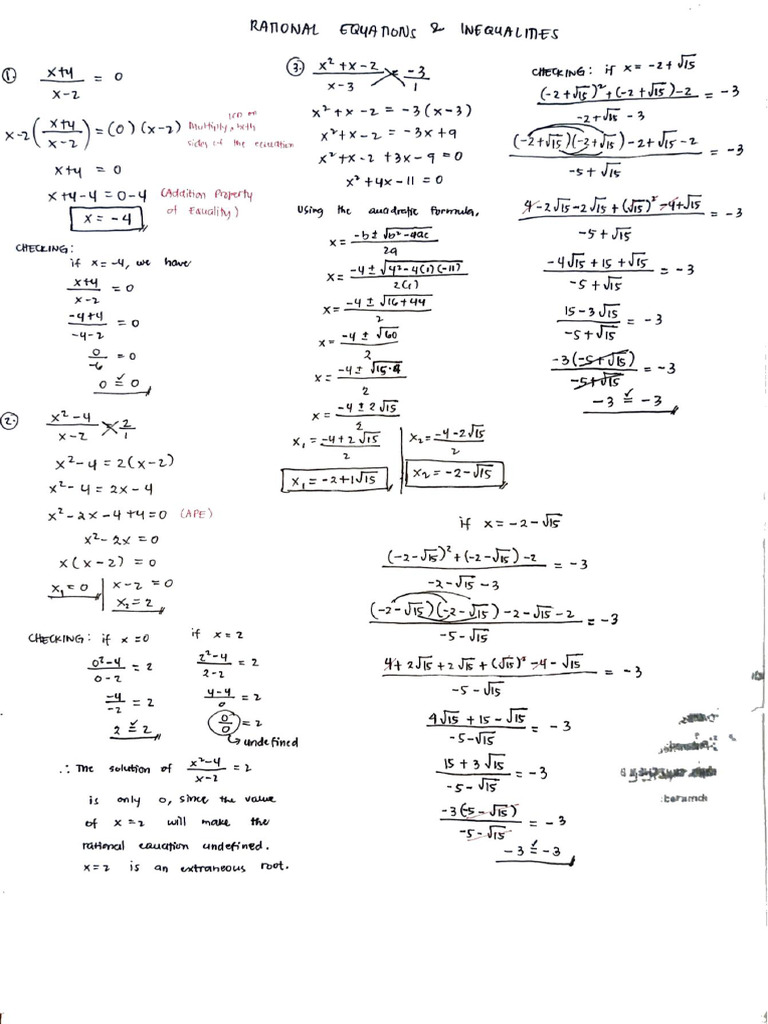 RATIONAL EQUATIONS & INEQUALITIES
1. (x+4)/(x-2) = 0
x-2((x+4)/(x-2)) = (0)(x-2) LCD Multiply both sides of the equation
x+4 = 0
x+4-4 = 0-4 (Addition Property of Equality)
x = -4
CHECKING:
if x=-4, we have
(x+4)/(x-2) = 0
(-4+4)/(-4-2) = 0
0/-6 = 0
0 ≟ 0 ✓
2. (x²-4)/(x-2) = 2/1
x²-4 = 2(x-2)
x²-4 = 2x-4
x²-2x-4+4=0 (APE)
x²-2x=0
x(x-2)=0
x₁=0 | x-2=0
x₂=2
CHECKING: if x=0
(0²-4)/(0-2) = 2
-4/-2 = 2
2 = 2 ✓
if x=2
(2²-4)/(2-2) = 2
(4-4)/0 = 2
0/0 = 2
undefined
∴ The solution of (x²-4)/(x-2) = 2
is only 0, since the value
of x=2 will make the
rational equation undefined.
x=2 is an extraneous root.
3. (x²+x-2)/(x-3) = -3/1
x²+x-2 = -3(x-3)
x²+x-2 = -3x+9
x²+x-2+3x-9=0
x²+4x-11=0
Using the quadratic formula,
x = (-b±√(b²-4ac))/2a
x = (-4±√(4²-4(1)(-11)))/2(1)
x = (-4±√(16+44))/2
x = (-4±√60)/2
x = (-4±√(15·4))/2
x = (-4±2√15)/2
x₁ = (-4+2√15)/2 | x₂ = (-4-2√15)/2
x₁ = -2+1√15 | x₂ = -2-√15
CHECKING: if x = -2+√15
((-2+√15)²+(-2+√15)-2)/(-2+√15-3) = -3
((-2+√15)(-2+√15)-2+√15-2)/(-5+√15) = -3
(4-2√15-2√15+(√15)²-4+√15)/(-5+√15) = -3
(-4√15+15+√15)/(-5+√15) = -3
(15-3√15)/(-5+√15) = -3
(-3(-5+√15))/(-5+√15) = -3
-3 = -3 ✓
if x = -2-√15
((-2-√15)²+(-2-√15)-2)/(-2-√15-3) = -3
((-2-√15)(-2-√15)-2-√15-2)/(-5-√15) = -3
(4+2√15+2√15+(√15)²-4-√15)/(-5-√15) = -3
(4√15+15-√15)/(-5-√15) = -3
(15+3√15)/(-5-√15) = -3
(-3(-5-√15))/(-5-√15) = -3
-3 = -3 ✓